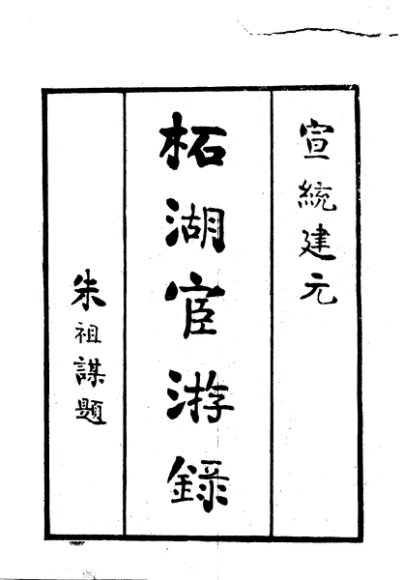 宣統建元
柘湖宦游錄
朱祖謀題